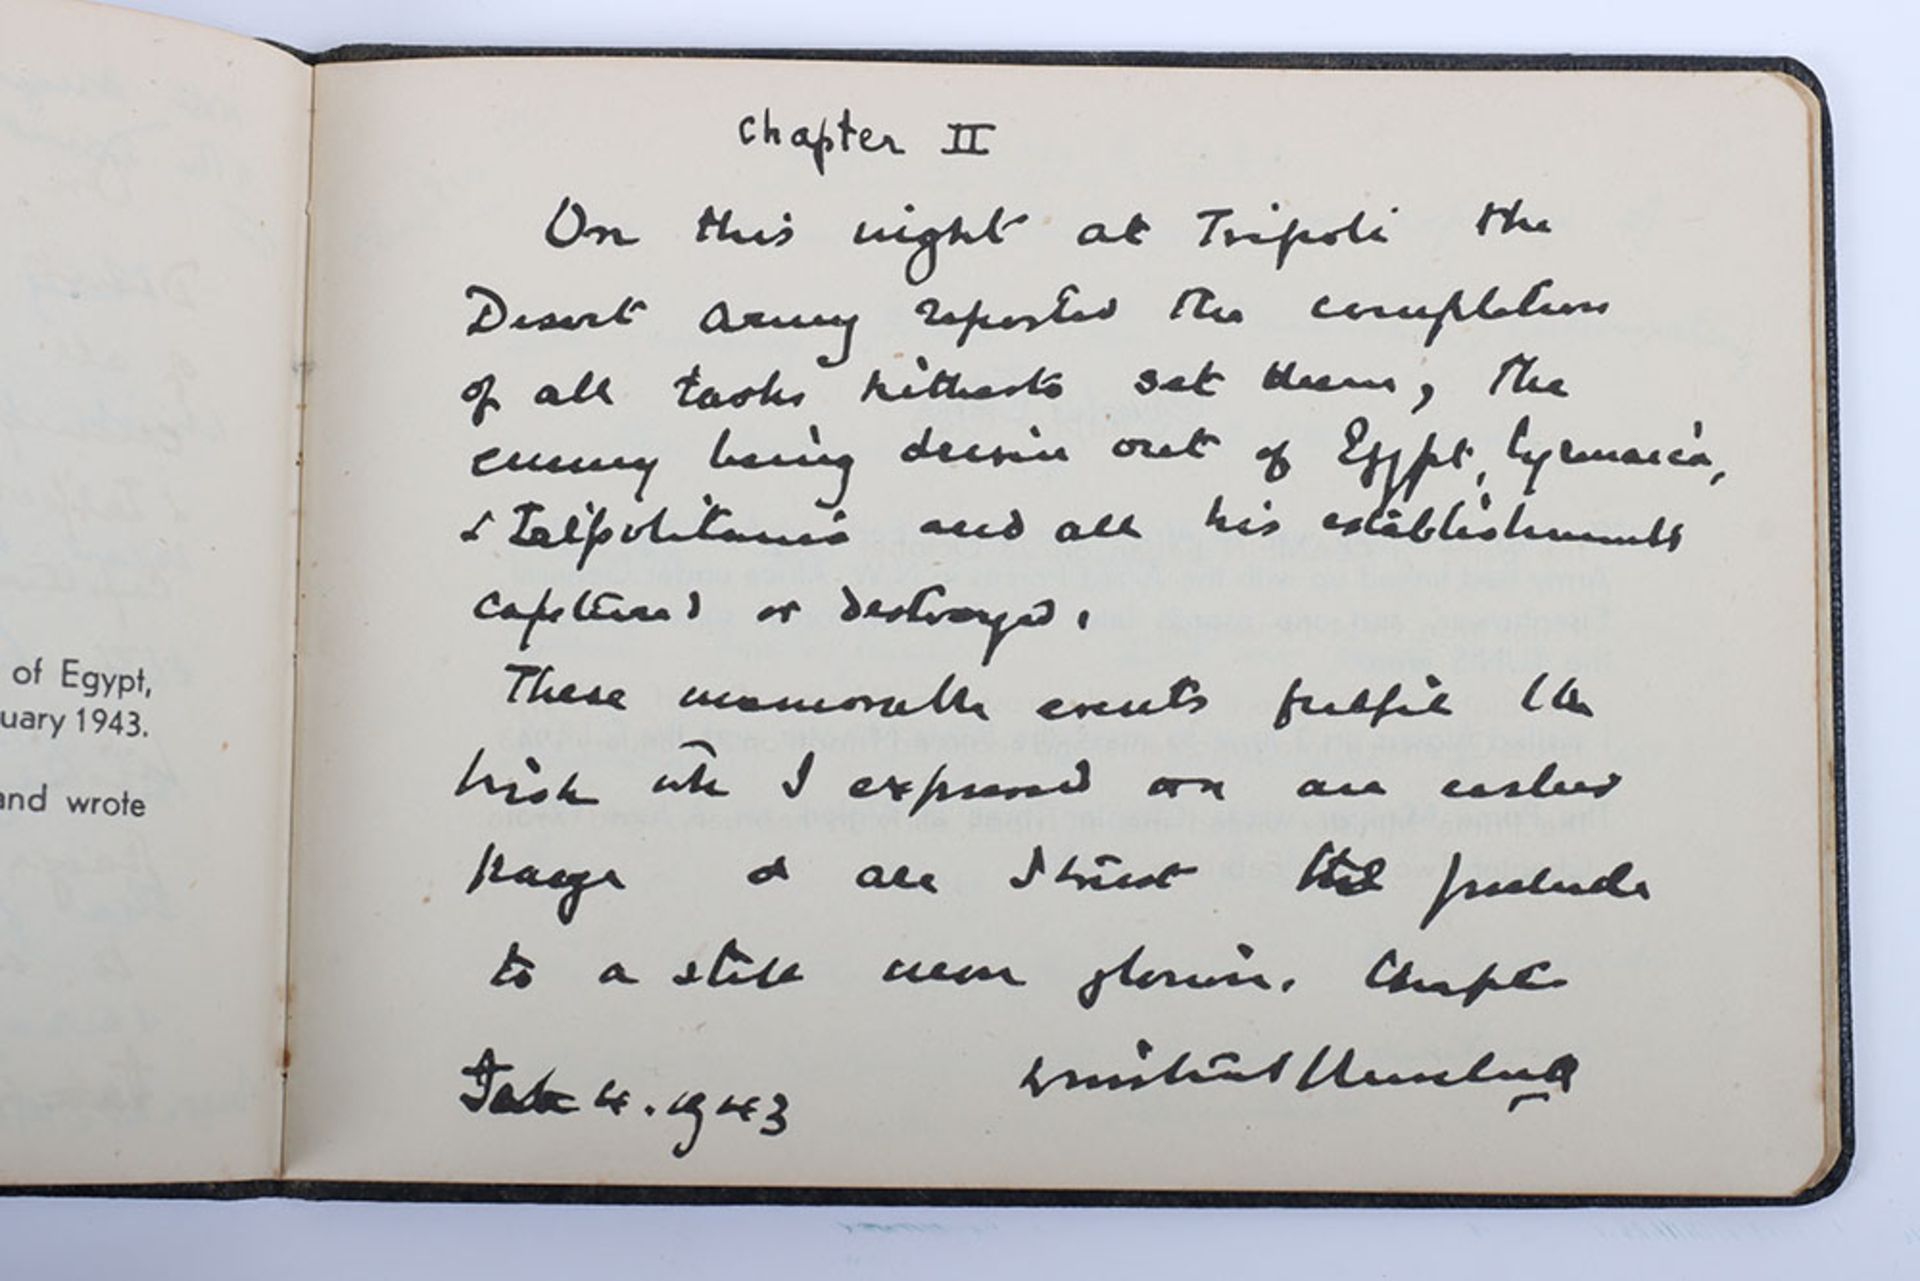 Chapter II
On this night at Tripoli the
Desert Army reported the completion
of all tasks hitherto set them, the
enemy being driven out of Egypt, Cyrenaica,
& Tripolitania and all his establishments
captured or destroyed.
These memorable events fulfil the
wish wh I expressed on an earlier
page & are I trust the prelude
to a still more glorious Chapter
Feb 4. 1943
Winston S Churchill
of Egypt,
uary 1943.
and wrote